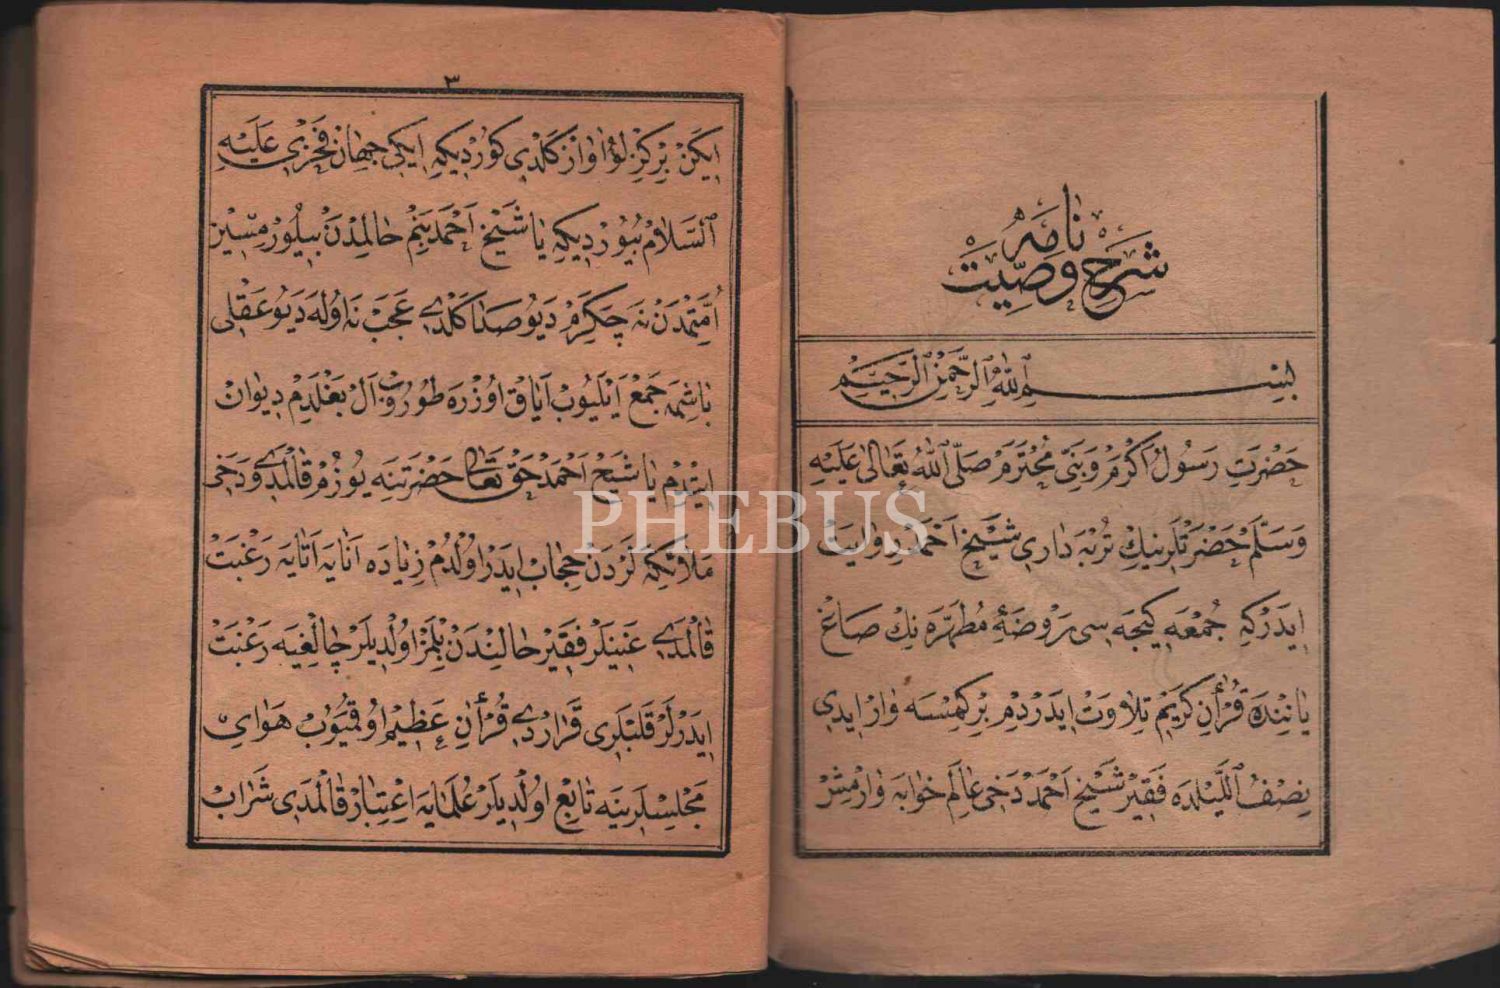 شرح وصیت نامه
بسم الله الرحمن الرحیم
حضرت رسول اکرم و نبی محترم صلی الله تعالی علیه
و سلم حضرتلرینك تربه داری شیخ احمد روایت
ایدرکه جمعه کیجه سی روضۀ مطهره نك صاغ
یاننده قرأن کریم تلاوت ایدردم برکمسه وار ایدی
نصف اللیلده فقیر شیخ احمد دخی عالم خوابه وارمش
٣
ایکن برکزلو اواز کلدی کوردیکه ایکی جهان فخری علیه
السلام بیوردیکه یا شیخ احمد بنم حالمدن بیلورمسین
امتمدن نه چکرم دیو صدا کلدی عجب نه اوله دیو عقلی
باشمه جمع ایلیوب ایاق اوزره طوروب ال بغلدم دیوان
ایتدم یا شیخ احمد حق تعالی حضرتنه یوزم قالمدی و دخی
ملائکه لردن حجاب ایدر اولدم زیاده انایه اتایه رغبت
قالمدی غنیلر فقیر حالندن بلمز اولدیلر چالغیه رغبت
ایدرلر قلبلری قراردی قرأن عظیم اوقیوب هوای
مجلسلرینه تابع اولدیلر علمایه اعتبار قالمدی شراب
PHEBUS